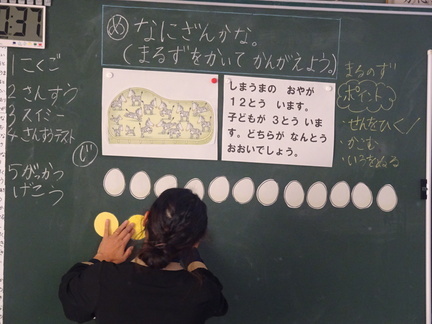 :37
めあ なにざんかな。
(まるずをかいて かんがえよう。)
1 こくご
2 さんすう
3 スイミー
4 さんすうテスト
5 がっかつ
げこう
しまうまの おやが
12とう います。
子どもが 3とう いま
す。どちらが なんとう
おおいでしょう。
まるのず
ポイント
・せんをひく
・かこむ
・いろをぬる